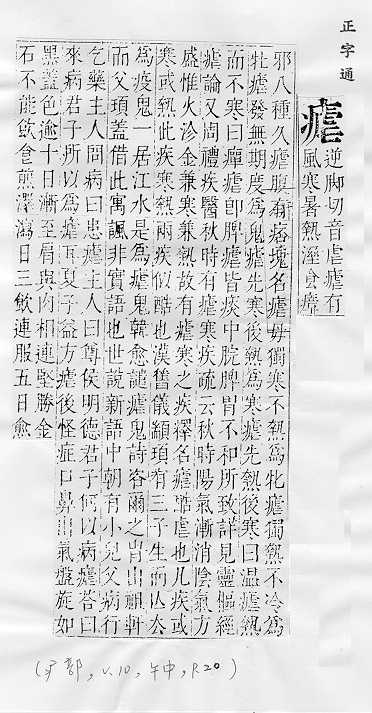 正字通
瘧
逆脚切音虐瘧有
風寒暑熱溼食瘴
邪八種久瘧腹有痞塊名瘧母獨寒不熱為牝瘧獨熱不冷為
牡瘧發無期度為鬼瘧先寒後熱為寒瘧先熱後寒曰温瘧熱
而不寒曰癉瘧卽脾瘧皆痰中脘脾胃不和所致詳見靈樞經
瘧論又周禮疾醫秋時有瘧寒疾疏云秋時陽氣漸消陰氣方
盛惟火沴金兼寒兼熱故有瘧寒之疾釋名瘧酷虐也凡疾或
寒或熱此疾寒熱兩疾似酷也漢舊儀顓頊有三子生而亾去
為疫鬼一居江水是為瘧鬼韓愈譴瘧鬼詩咨爾之胄出軒轅
而父頊蓋借此寓諷非實語也世說新語中朝有小兒父病行
乞藥主人問病曰患瘧主人曰尊侯明德君子何以病瘧荅曰
來病君子所以為瘧耳夏子益方瘧後怪症口鼻出氣盤旋如
黑蓋色逾十日漸至肩與肉相連堅勝金
石不能飲食煎澤瀉日三飲連服五日愈
(疒部, v.10, 午中, p.20)